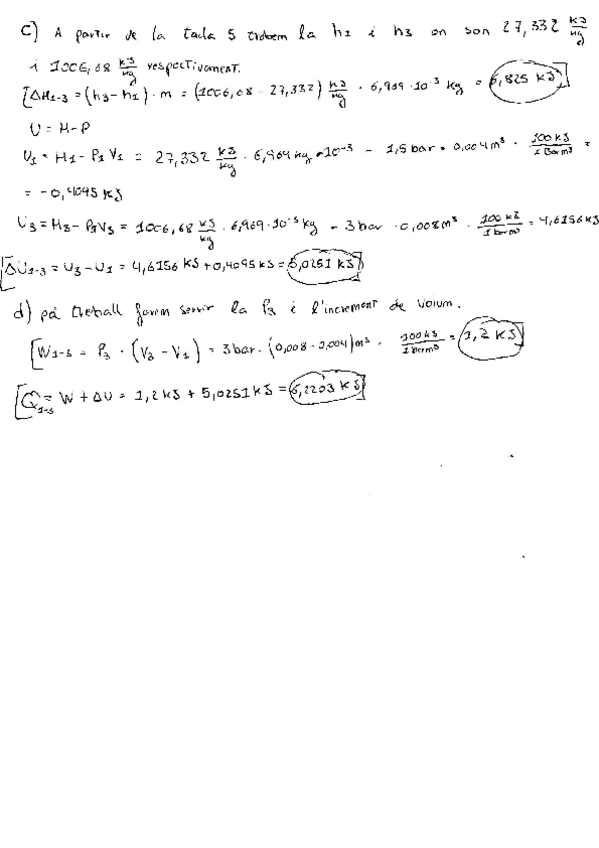 c) A partir de la taula 5 trobem la h1 i h3 on son 27,332 kJ/kg
i 1006,68 kJ/kg respectivament.
[ΔH1-3 = (h3-h1) · m = (1006,68 - 27,332) kJ/kg · 6,969·10⁻³ kg = 6,825 kJ]
U = H-P
U1 = H1 - P1 V1 = 27,332 kJ/kg · 6,969 kg·10⁻³ - 1,5 bar · 0,004 m³ · 100 kJ/1 Bar m³ =
= -0,4095 kJ
U3 = H3 - P3V3 = 1006,68 kJ/kg · 6,969·10⁻³ kg - 3 bar · 0,008 m³ · 100 kJ/1 bar m³ = 4,6156 kJ
[ΔU1-3 = U3 - U1 = 4,6156 kJ + 0,4095 kJ = 5,0251 kJ]
d) pel treball farem servir la P3 i l'increment de volum.
[W1-3 = P3 · (V3 - V1) = 3 bar · (0,008 - 0,004) m³ · 100 kJ/1 bar m³ = 1,2 kJ]
[Q1-3 = W + ΔU = 1,2 kJ + 5,0251 kJ = 6,2203 kJ]